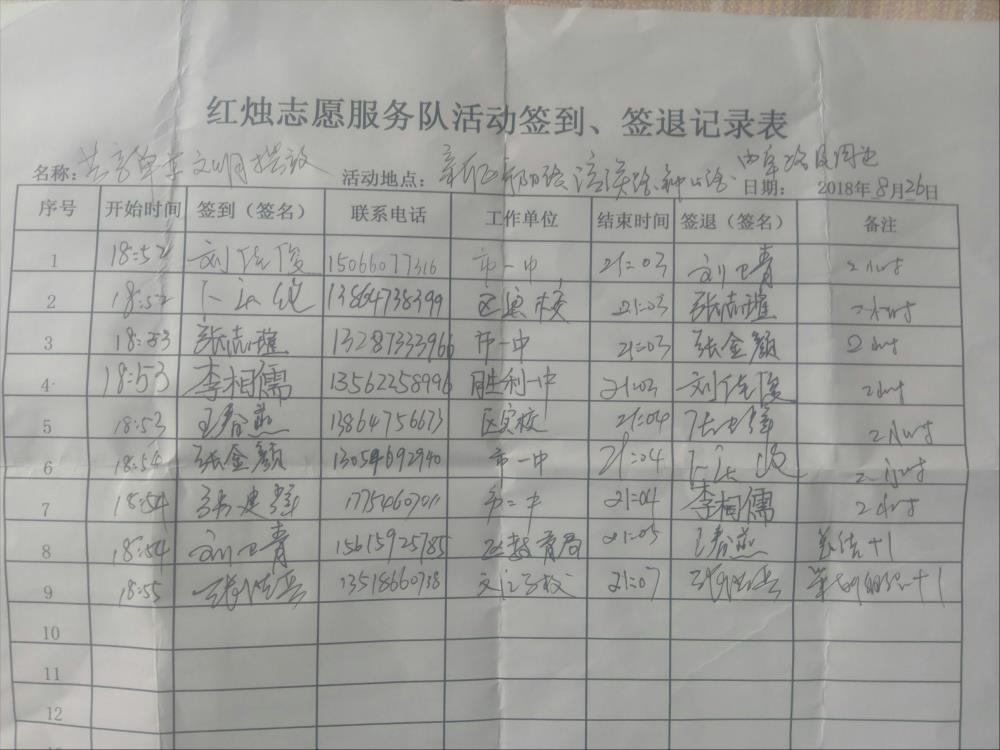 红烛志愿服务队活动签到、签退记录表
名称: 共享单车文明摆放 活动地点: 日期: 2018年8月26日
序号 开始时间 签到（签名） 联系电话 工作单位 结束时间 签退（签名） 备注
1 18:52 刘佳俊 15066077316 市一中 21:03 刘卫青 2小时
2 18:52 13864738399 区实校 21:03 张志瑾 2小时
3 18:53 张志瑾 13287333966 市一中 21:03 张金颜 2小时
4 18:53 李相儒 13562258996 胜利一中 21:03 刘佳俊 2小时
5 18:53 王春燕 13864756673 区实校 21:04 2小时
6 18:54 张金颜 13054692940 市一中 21:04 2小时
7 18:54 张建辉 17754607011 市二中 21:04 李相儒 2小时
8 18:54 刘卫青 15615925785 区教育局 21:05 王春燕 总结+1
9 18:55 13518660738 文汇学校 21:07 +1
10
11
12